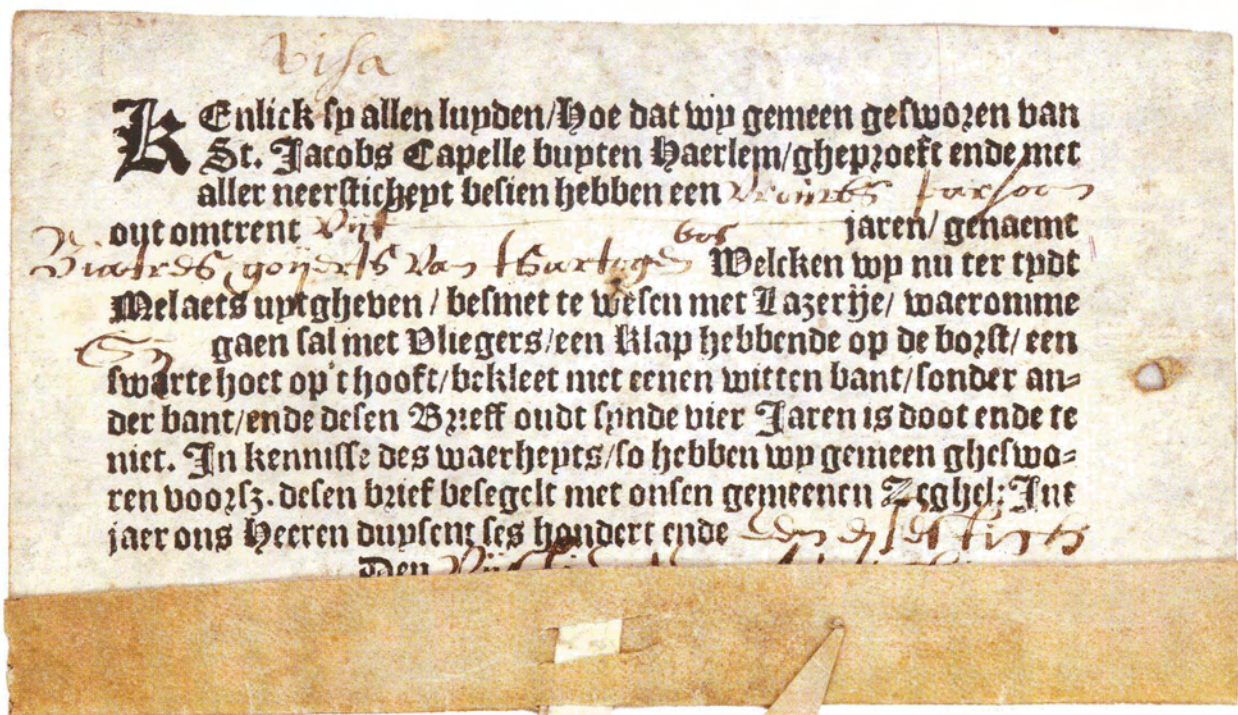 Visa
KEnlick sy allen luyden/Hoe dat wy gemeen gesworen van
St. Jacobs Capelle buyten Haerlem/gheproeft ende met
aller neersticheyt besien hebben een vrouwes parsoon
out omtrent vijf jaren/ genaemt
bos
goijerts van tSartogen Welcken wy nu ter tydt
Melaets uytgheven / besmet te wesen met Lazerije/ waeromme
Sij gaen sal met Vliegers/een Klap hebbende op de borst/ een
swarte hoet op't hooft/bekleet met eenen witten bant/sonder an-
der bant/ende desen Brieff oudt synde vier Jaren is doot ende te
niet. In kennisse des waerheyts/so hebben wy gemeen gheswo-
ren voorsz. desen brief besegelt met onsen gemeenen Zeghel: Int
jaer ons Heeren duysent ses hondert ende
Den